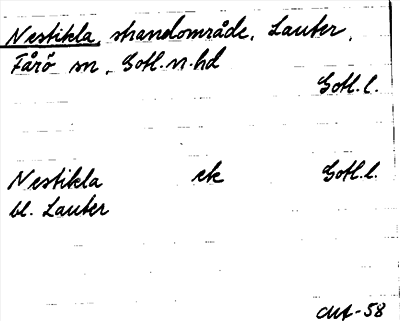 Nestikla, strandområde, Lauter,
Fårö sn, Gotl.n.hd
Gotl.l.
Nestikla ek Gotl.l.
bl. Lauter
-58